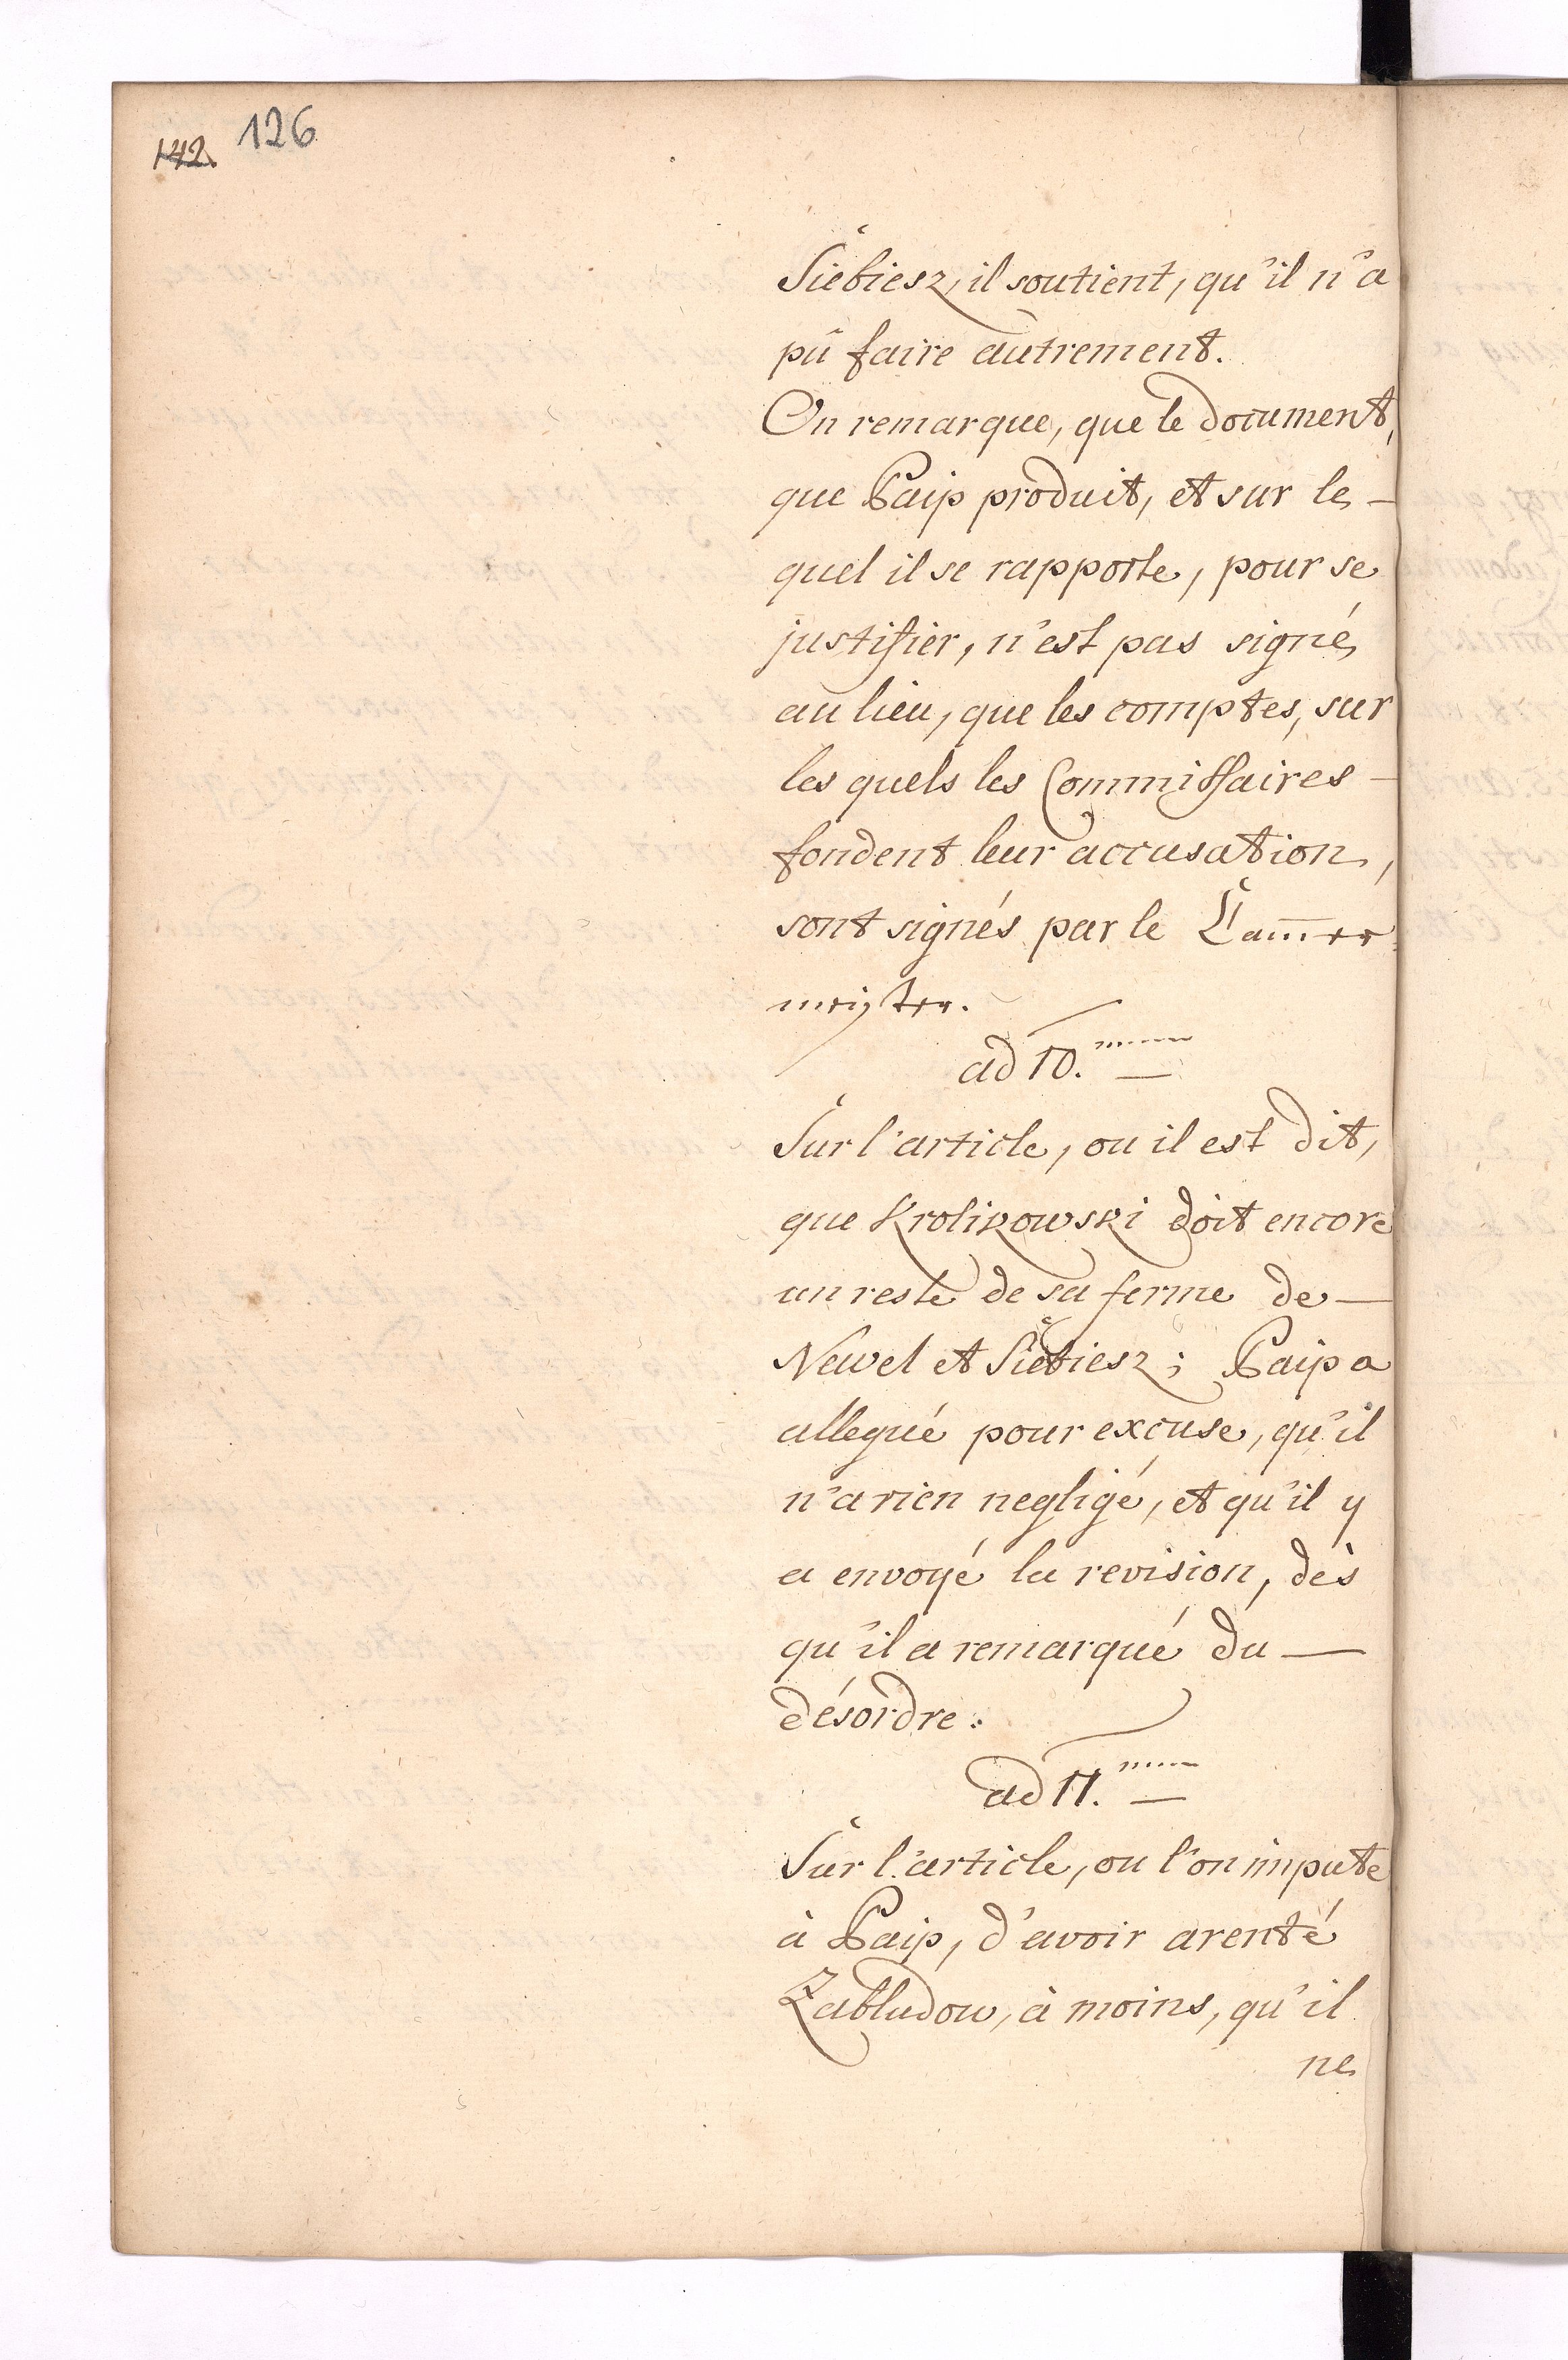 142. 126
Siebiesz, il soutient, qu'il n'a
pû faire autrement.
On remarque, que le document,
que Paip produit, et sur le-
quel il se rapporte, pour se
justifier, n'est pas signé,
au lieu, que les comptes, sur
les quels les Commissaires
fondent leur accusation,
sont signés par le Cammer
meister.
ad 10.
Sur l'article, ou il est dit,
que Krolikowski doit encore
un reste de sa ferme de
Newel et Siebiesz; Paip a
allegué pour excuse, qu'il
n'a rien negligé, et qu'il y
a envoyé la revision, dès
qu'il a remarqué du
désordre.
ad 11.
Sur l'article, ou l'on impute
à Paip, d'avoir arenté
Zabludow, à moins, qu'il
ne